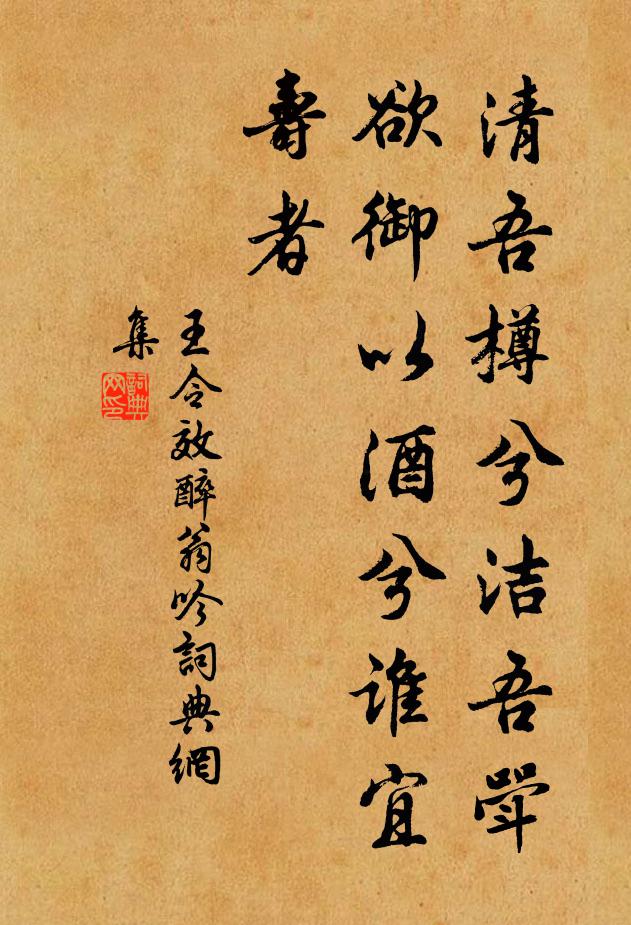 清吾樽兮洁吾斝
欲御以酒兮谁宜
壽者
王令效醉翁吟詞典網
集
詞典網印